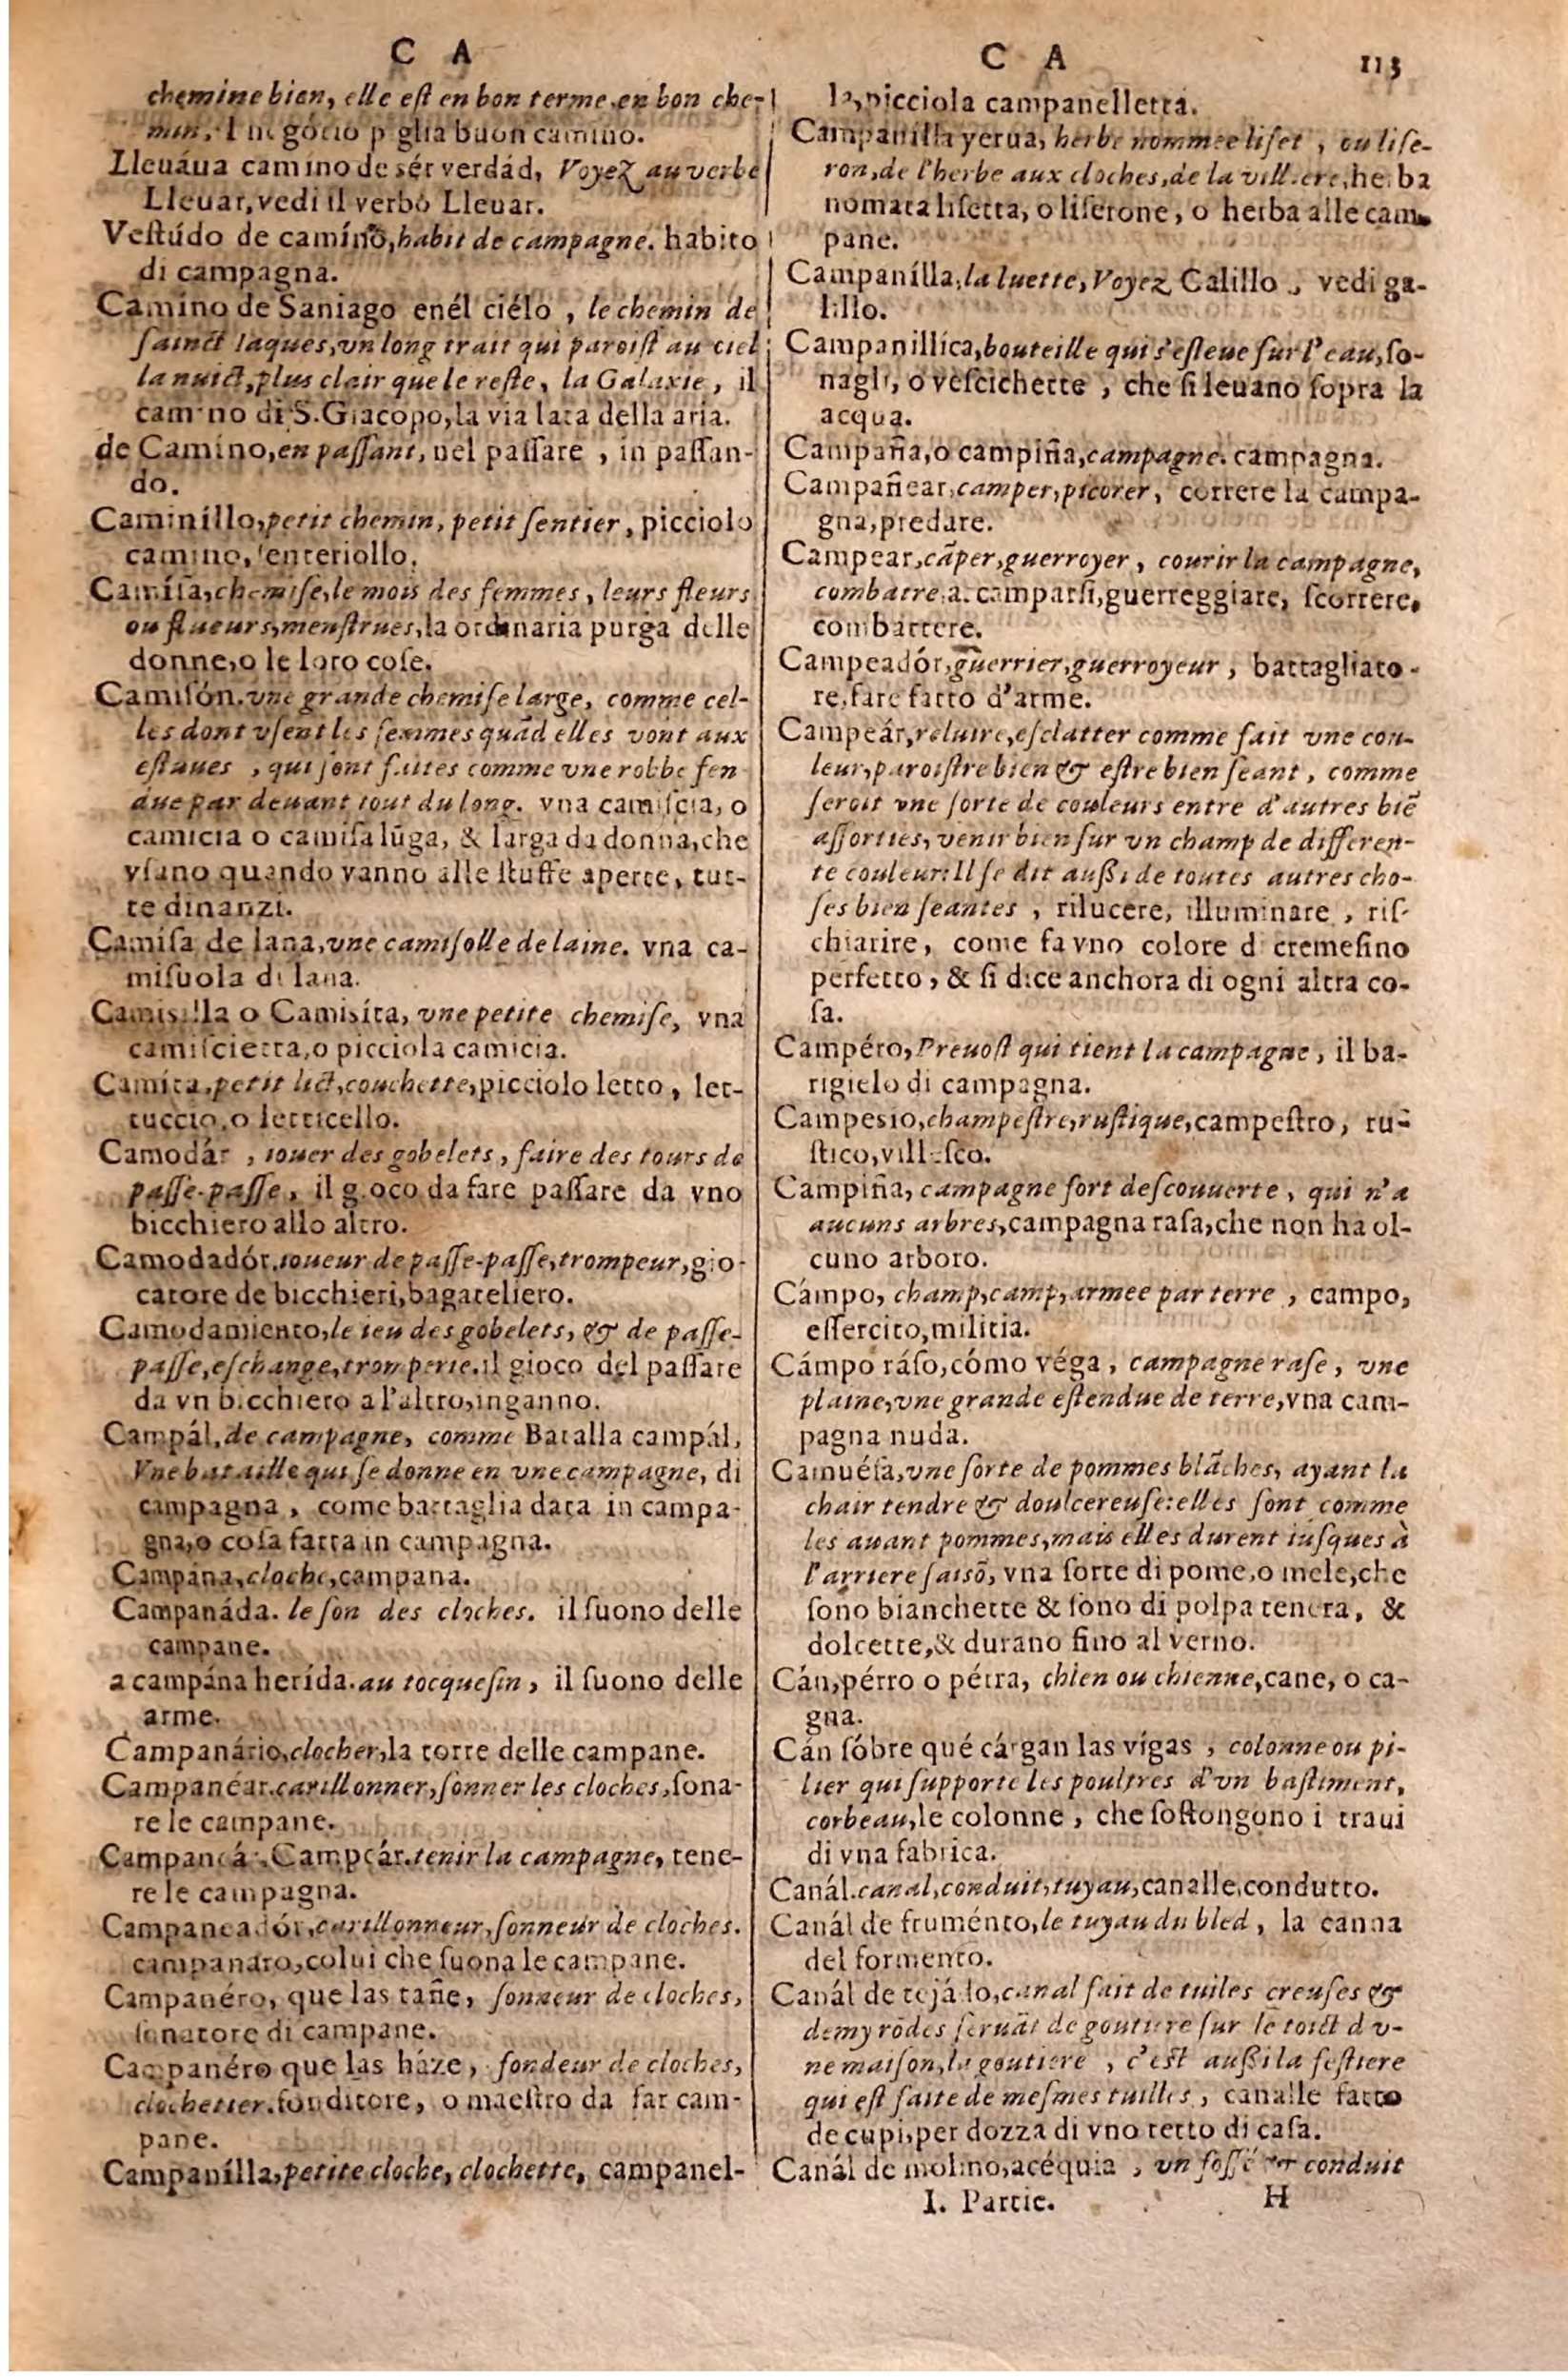 C A
chemine bien, elle eſt en bon terme, en bon che-
min, negócio p glia buon camino.
Lleuáua camíno de sér verdád, Voyez au verbe
Lleuar, vedi il verbo Lleuar.
Veſtúdo de camíno, habit de campagne. habito
di campagna.
Camíno de Saniago enél ciélo, le chemin de
ſainct Iaques, vn long trait qui paroiſt au ciel
la nuict, plus clair que le reſte, la Galaxie, il
camino di S. Giacopo, la via lata della aria.
de Camino, en paſſant, nel paſſare, in paſſan-
do.
Caminíllo, petit chemin, petit ſentier, picciolo
camino, ſenteriollo.
Camíſa, chemiſe, le mois des femmes, leurs fleurs
ou flueurs, menſtrues, la ordinaria purga delle
donne, o le loro coſe.
Camiſón. vne grande chemiſe large, comme cel-
les dont vſent les femmes quād elles vont aux
eſtuues, qui ſont faites comme vne robbe fen
due par deuant tout du long. vna camiſcia, o
camicia o camiſa lūga, & larga da donna, che
vſano quando vanno alle ſtuffe aperte, tut-
te dinanzi.
Camíſa de lana, vne camiſolle de laine. vna ca-
miſuola di lana.
Camisilla o Camisíta, vne petite chemiſe, vna
camiſcietta, o picciola camicia.
Camíta, petit lict, couchette, picciolo letto, let-
tuccio, o letticello.
Camodár, iouer des gobelets, faire des tours de
paſſe-paſſe, il gioco da fare paſſare da vno
bicchiero allo altro.
Camodadór, ioueur de paſſe-paſſe, trompeur, gio-
catore de bicchieri, bagateliero.
Camodamiento, le ieu des gobelets, & de paſſe-
paſſe, eſchange, tromperie. il gioco del paſſare
da vn bicchiero a l'altro, inganno.
Campál, de campagne, comme Batalla campál,
Vne bataille qui ſe donne en vne campagne, di
campagna, come battaglia data in campa-
gna, o coſa fatta in campagna.
Campána, cloche, campana.
Campanáda. le ſon des cloches. il ſuono delle
campane.
a campána herída. au tocqueſin, il ſuono delle
arme.
Campanário, clocher, la torre delle campane.
Campanéar. carillonner, ſonner les cloches, ſona-
re le campane.
Campaneár, Campeár. tenir la campagne, tene-
re le campagna.
Campaneadór, carillonneur, ſonneur de cloches.
campanaro, colui che ſuona le campane.
Campanéro, que las tañe, ſonneur de cloches,
ſonatore di campane.
Campanéro que las háze, fondeur de cloches,
clochetier. fonditore, o maeſtro da far cam-
pane.
Campanílla, petite cloche, clochette, campanel-
C A 113
la, picciola campanelletta.
Campanílla yerua, herbe nommee liſet, ou liſe-
ron, de l'herbe aux cloches, de la vill.ere, herba
nomata liſetta, o liſerone, o herba alle cam-
pane.
Campanílla, la luette, Voyez Galillo, vedi ga-
lillo.
Campanillíca, bouteille qui s'eſleue ſur l'eau, ſo-
nagli, o veſcichette, che ſi leuano ſopra la
acqua.
Campaña, o campiña, campagne. campagna.
Campañear, camper, picorer, correre la campa-
gna, predare.
Campear, cāper, guerroyer, courir la campagne,
combatre, a. camparſi, guerreggiare, ſcorrere,
combattere.
Campeadór, guerrier, guerroyeur, battagliato-
re, fare fatto d'arme.
Campeár, reluire, eſclatter comme fait vne cou-
leur, paroiſtre bien & eſtre bien ſeant, comme
ſeroit vne ſorte de couleurs entre d'autres biē
aſſorties, venir bien ſur vn champ de differen-
te couleur: Il ſe dit auſſi de toutes autres cho-
ſes bien ſeantes, rilucere, illuminare, riſ-
chiarire, come fa vno colore di cremeſino
perfetto, & ſi dice anchora di ogni altra co-
ſa.
Campéro, Preuoſt qui tient la campagne, il ba-
rigielo di campagna.
Campesio, champeſtre, ruſtique, campeſtro, ru-
ſtico, villeſco.
Campiña, campagne fort deſcouuerte, qui n'a
aucuns arbres, campagna raſa, che non ha ol-
cuno arboro.
Cámpo, champ, camp, armee par terre, campo,
eſſercito, militia.
Cámpo ráſo, cómo véga, campagne raſe, vne
plaine, vne grande eſtendue de terre, vna cam-
pagna nuda.
Camuéſa, vne ſorte de pommes blāches, ayant la
chair tendre & doulcereuſe: elles ſont comme
les auant pommes, mais elles durent iuſques à
l'arriere ſaiſō, vna ſorte di pome, o mele, che
ſono bianchette & ſono di polpa tenera, &
dolcette, & durano fino al verno.
Cán, pérro o pérra, chien ou chienne, cane, o ca-
gna.
Cán ſóbre qué cárgan las vígas, colonne ou pi-
lier qui ſupporte les poultres d'vn baſtiment,
corbeau, le colonne, che ſoſtongono i traui
di vna fabrica.
Canál. canal, conduit, tuyau, canalle, condutto.
Canál de fruménto, le tuyau du bled, la canna
del formento.
Canál de tejádo, canal fait de tuiles creuſes &
demy rōdes ſeruāt de goutiere ſur le toict d'v-
ne maiſon, la goutiere, c'eſt auſſi la feſtiere
qui eſt faite de meſmes tuilles, canalle fatto
de cupi, per dozza di vno tetto di caſa.
Canál de molino, acéquia, vn foſſé & conduit
I. Partie. H